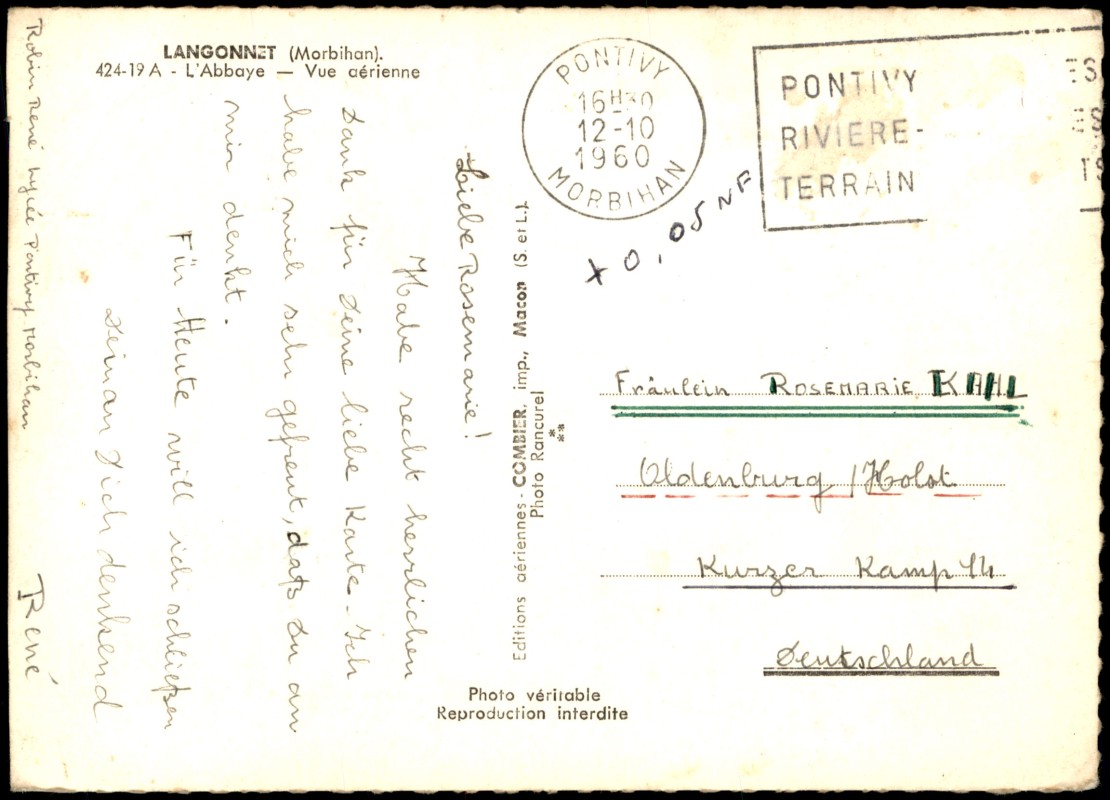 LANGONNET (Morbihan).
424-19 A - L'Abbaye — Vue aérienne
Liebe Rosemarie!
Habe recht herzlichen
Dank für Deine liebe Karte. Ich
habe mich sehr gefreut, daß Du an
mir denkt.
Für Heute will ich schließen
Deinan Dich denkend
René
Robin René Lycée Pontivy Morbihan
Editions aériennes - COMBIER, imp., Macon (S. et L.).
Photo Rancurel
**
Photo véritable
Reproduction interdite
PONTIVY
16H30
12-10
1960
MORBIHAN
PONTIVY
RIVIERE-
TERRAIN
ES
ES
TS
x 0,05 NF
Fräulein ROSEMARIE KAHL
Oldenburg / Holst
Kurzer Kamp 14
Deutschland